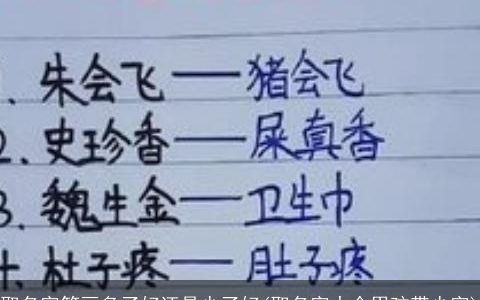 1. 朱会飞——猪会飞
2. 史珍香——屎真香
3. 魏生金——卫生巾
4. 杜子疼——肚子疼